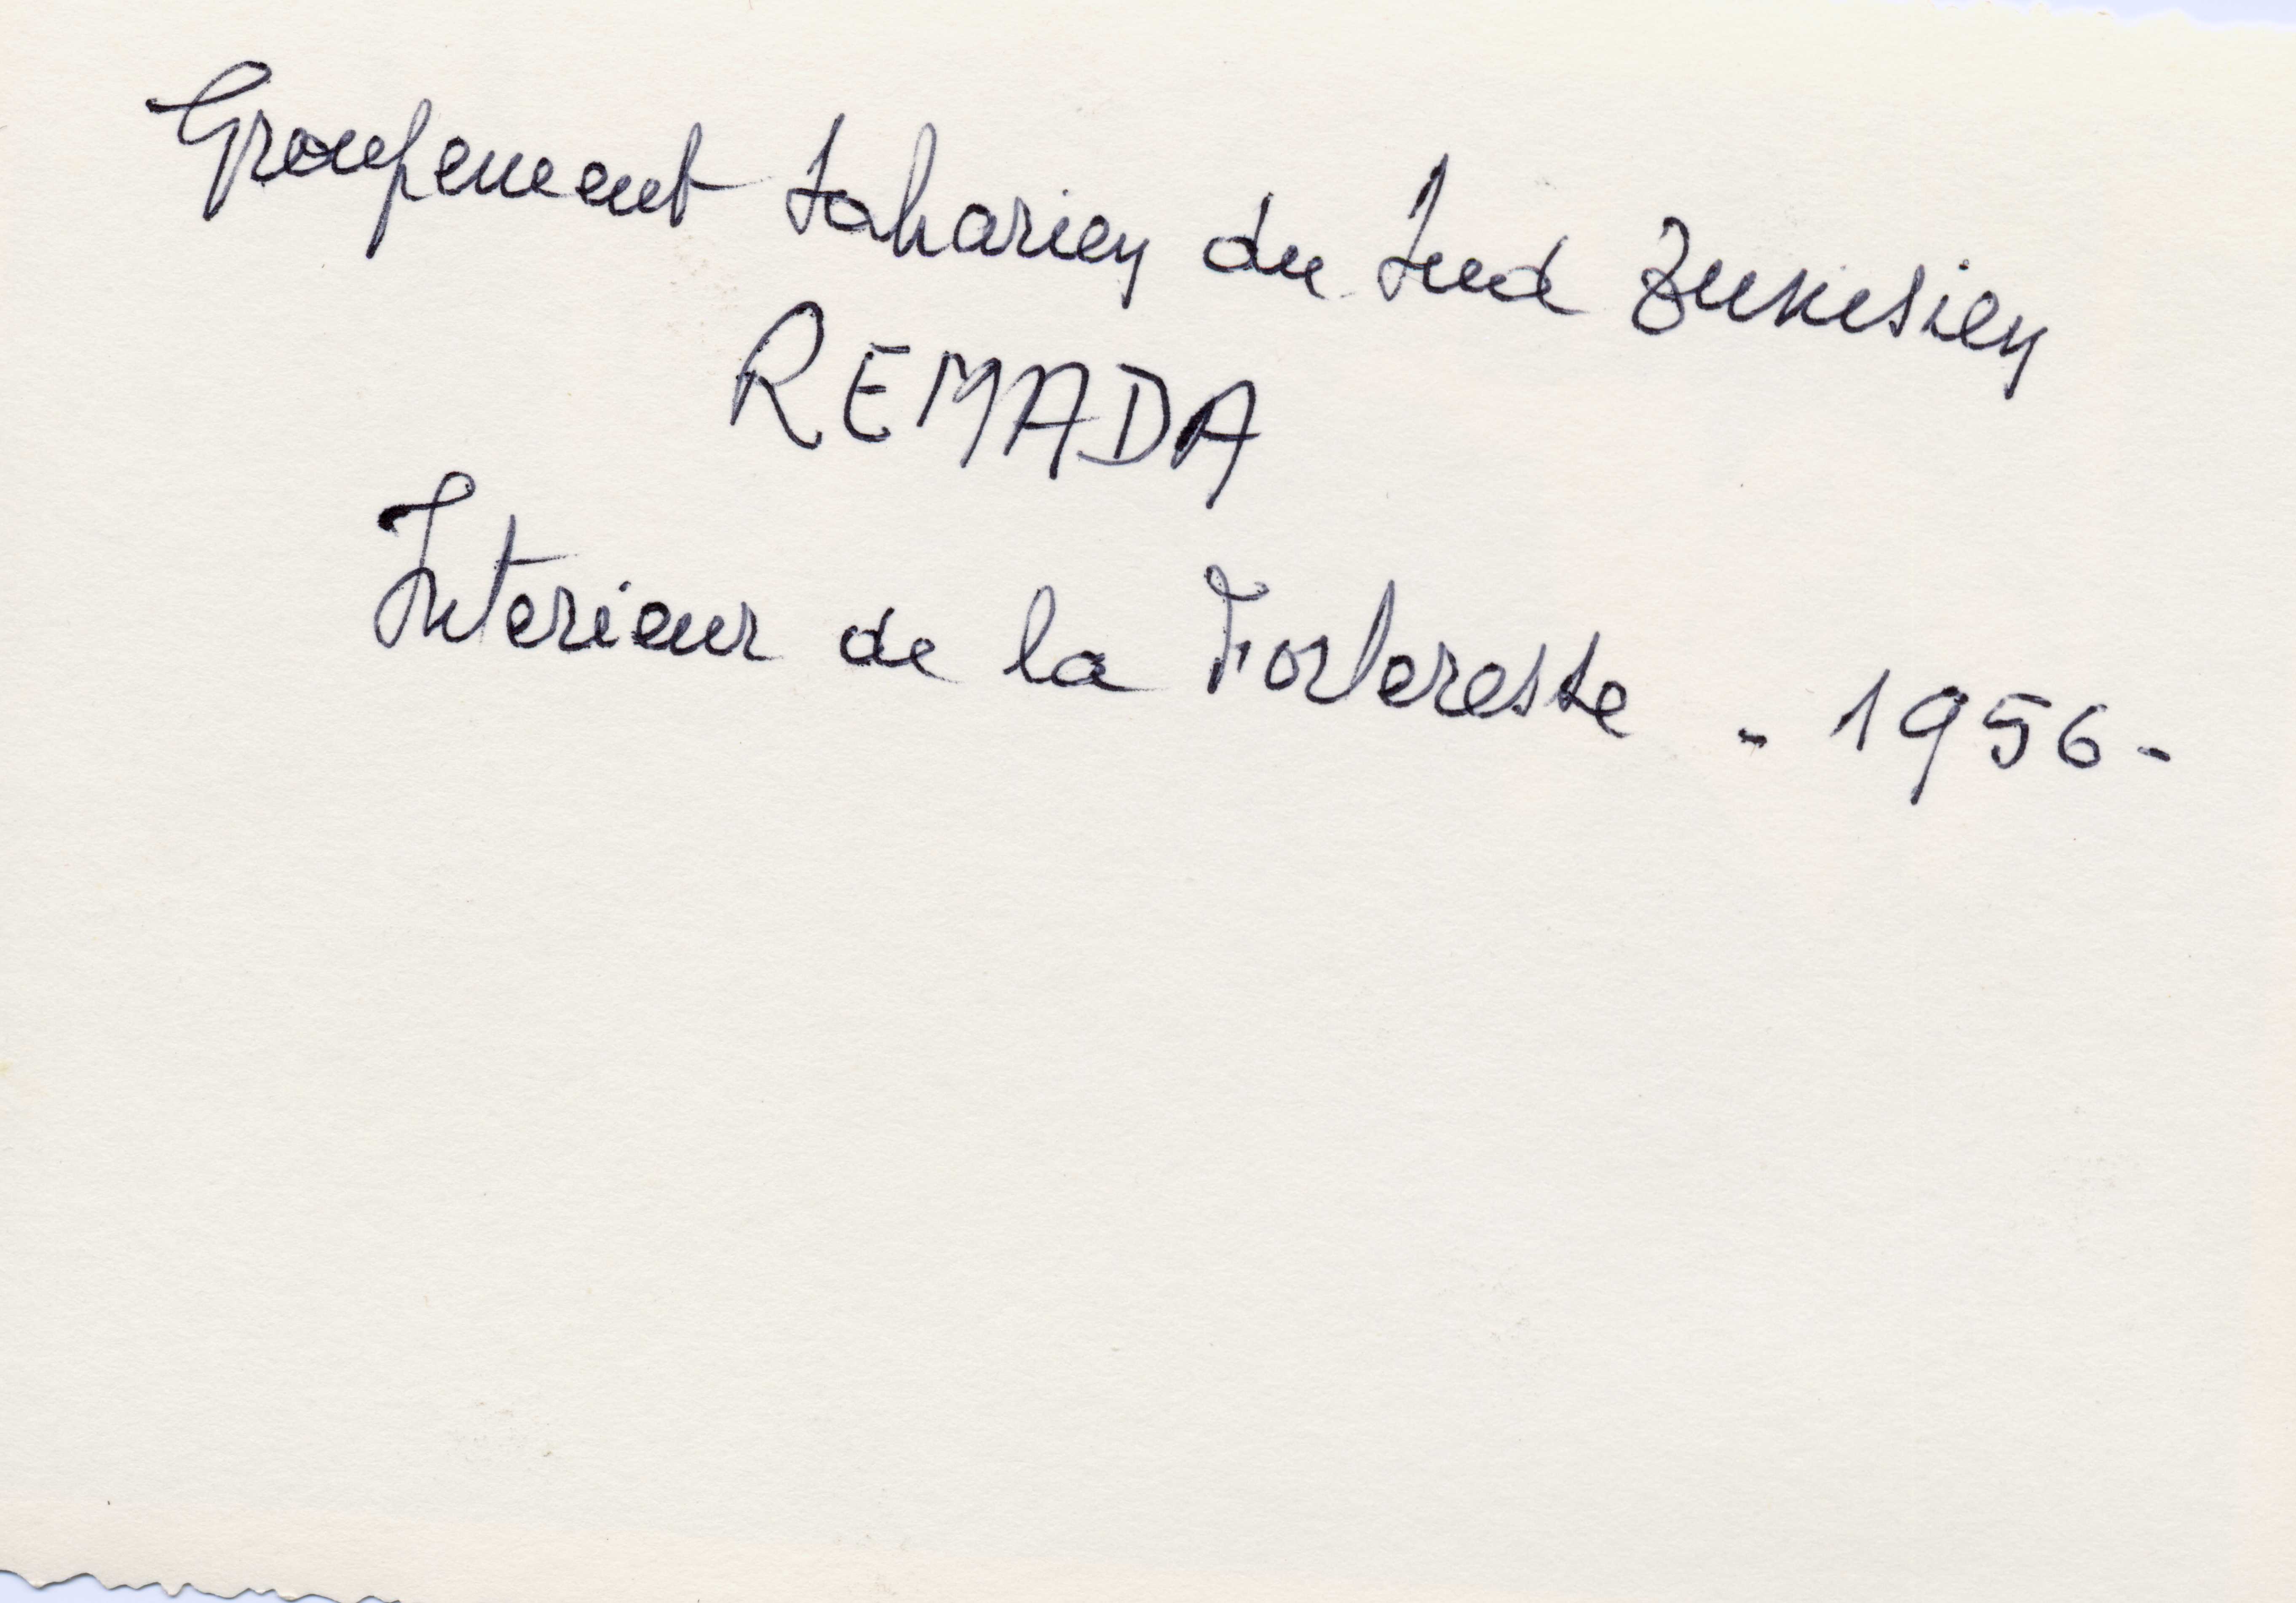 Groupement Saharien du Sud Tunisien
REMADA
Interieur de la Forteresse - 1956 -